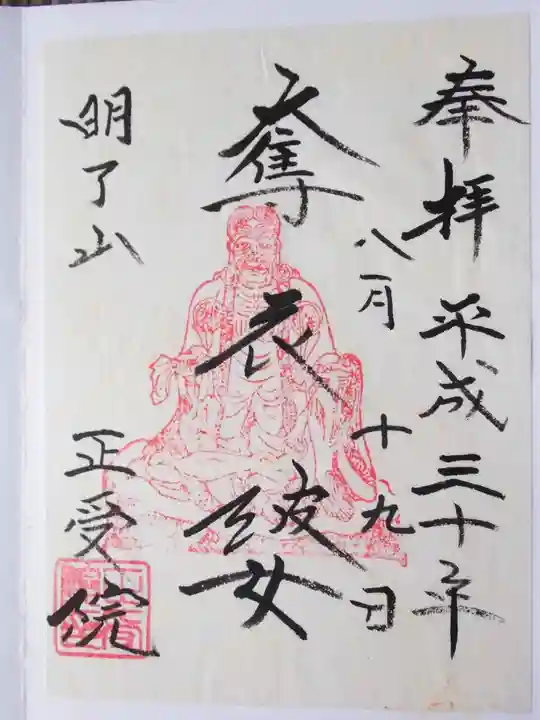 奉拝 平成三十年
八月十九日
奪衣婆
明了山
正受院